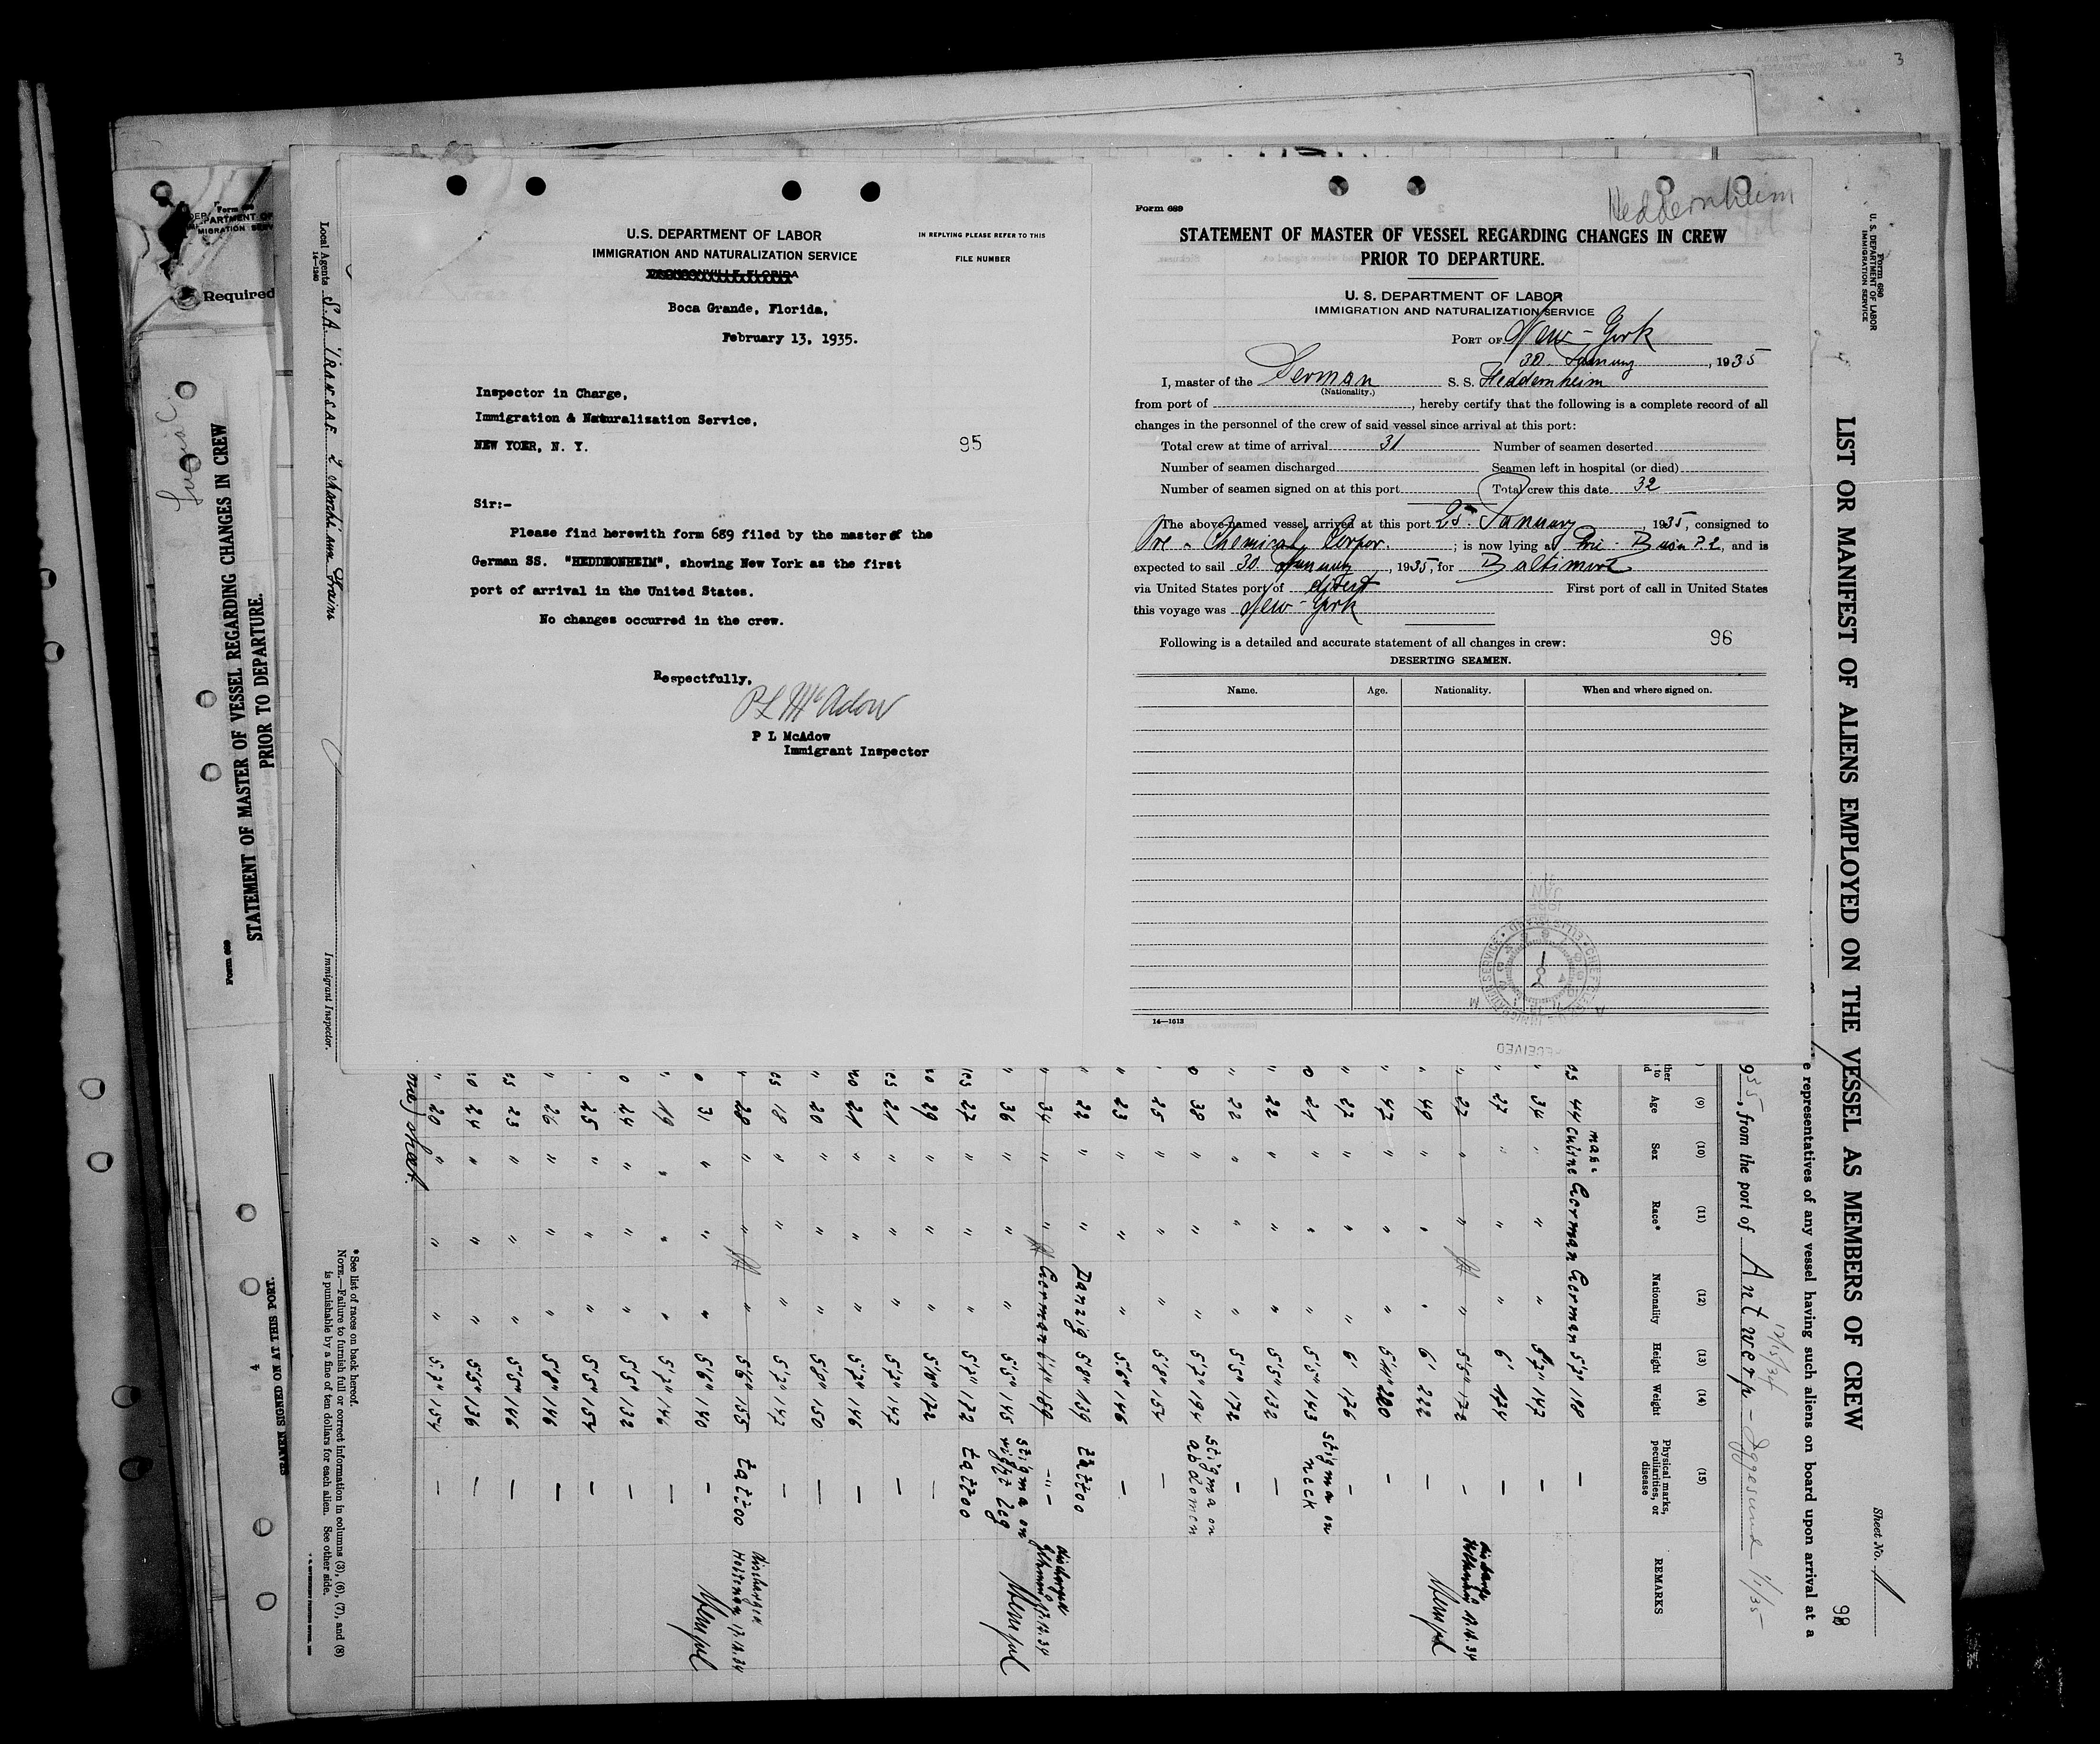 3
U.S. DEPARTMENT OF LABOR
IMMIGRATION AND NATURALIZATION SERVICE
IN REPLYING PLEASE REFER TO THIS
FILE NUMBER
Boca Grande, Florida,
February 13, 1935.
Inspector in Charge,
Immigration & Naturalization Service,
NEW YOER, N. Y.
95
Sir:-
Please find herewith form 689 filed by the master of the
German SS. "HEDDEONHEIM", showing New York as the first
port of arrival in the United States.
No changes occurred in the crew.
Respectfully,
P L McAdow
P L McAdow
Immigrant Inspector
Heddernheim
Form 689
STATEMENT OF MASTER OF VESSEL REGARDING CHANGES IN CREW
PRIOR TO DEPARTURE.
U. S. DEPARTMENT OF LABOR
IMMIGRATION AND NATURALIZATION SERVICE
PORT OF New-York
30. January, 1935
I, master of the German S. S. Heddernheim
(Nationality.)
from port of , hereby certify that the following is a complete record of all
changes in the personnel of the crew of said vessel since arrival at this port:
Total crew at time of arrival 31 Number of seamen deserted
Number of seamen discharged Seamen left in hospital (or died)
Number of seamen signed on at this port Total crew this date 32
The above-named vessel arrived at this port 25. January, 1935, consigned to
Ore - Chemical Corpor. ; is now lying at , and is
expected to sail 30. January, 1935, for Baltimore
via United States port of direct First port of call in United States
this voyage was New-York
Following is a detailed and accurate statement of all changes in crew:
96
DESERTING SEAMEN.
Name. Age. Nationality. When and where signed on.
14—1613
RECEIVED
Form 689
STATEMENT OF MASTER OF VESSEL REGARDING CHANGES IN CREW
PRIOR TO DEPARTURE.
Required
SEAMEN SIGNED ON AT THIS PORT.
4
Local Agents
Immigrant Inspector.
Form 680
U. S. DEPARTMENT OF LABOR
IMMIGRATION SERVICE
LIST OR MANIFEST OF ALIENS EMPLOYED ON THE VESSEL AS MEMBERS OF CREW
Sheet No. 1
98
e representatives of any vessel having such aliens on board upon arrival at a
935, from the port of Antwerp - 1/1/35
12/15/34
(9) (10) (11) (12) (13) (14) (15)
Age Sex Race* Nationality Height Weight Physical marks, peculiarities, or disease REMARKS
44 masculine German German 5'7" 180 —
34 " " " 5'7" 147 —
27 " " " 6' 174 —
27 " " " 5'5" 172 —
49 " " " 6' 222 —
47 " " " 5'11" 200 —
27 " " " 6' 176 —
21 " " " 5'5" 143 stigma on neck
22 " " " 5'5" 132 —
22 " " " 5'5" 172 —
38 " " " 5'7" 194 stigma on abdomen
25 " " " 5'8" 154 —
23 " " " 5'6" 146 —
22 " " Danzig 5'8" 139 tattoo
34 " " German 6'1" 189 -"- discharged
36 " " " 5'5" 145 stigma on right leg
27 " " " 5'7" 172 tattoo
29 " " " 5'10" 172 —
21 " " " 5'7" 147 —
21 " " " 5'7" 146 —
20 " " " 5'8" 150 —
18 " " " 5'7" 147 —
28 " " " 5'6" 155 tattoo discharged Holtenau 17.12.34
31 " " " 5'6" 140 —
19 " " " 5'7" 146 —
24 " " " 5'5" 132 —
25 " " " 5'5" 154 —
26 " " " 5'8" 146 —
23 " " " 5'5" 146 —
24 " " " 5'5" 136 —
20 " " " 5'7" 154 —
*See list of races on back hereof.
NOTE.—Failure to furnish full or correct information in columns (3), (6), (7), and (8)
is punishable by a fine of ten dollars for each alien. See other side.